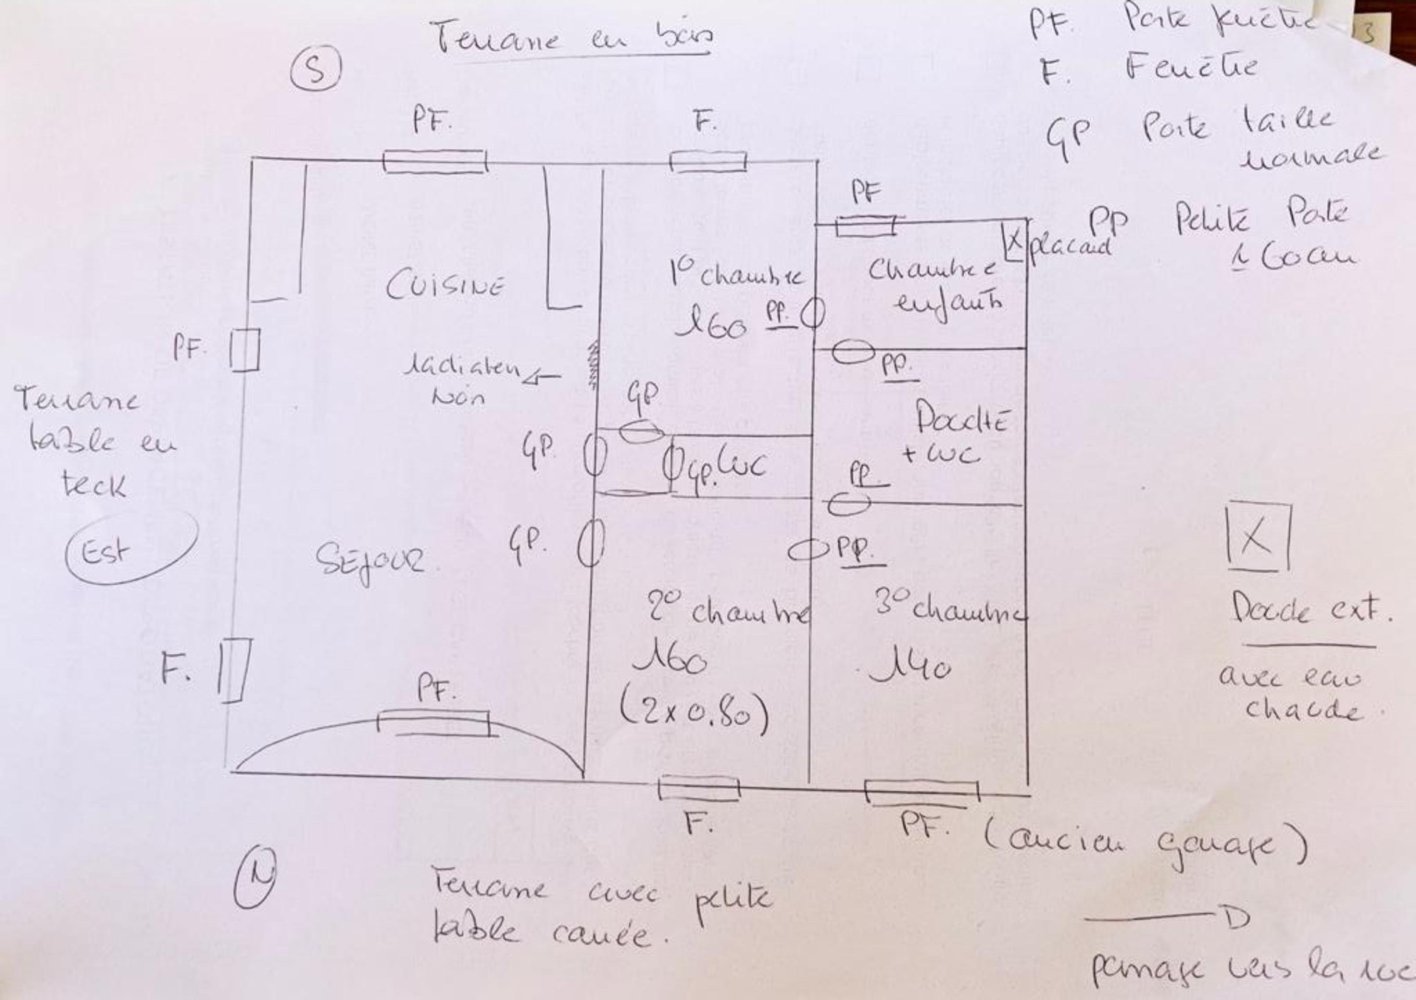 Terrasse en bois
S
PF. Porte fenêtre
3
F. Fenêtre
GP Porte taille
normale
PP Petite Porte
60 cm
PF.
F.
PF
X placard
CUISINE
1° chambre
160 PP.
Chambre
enfants
PF.
radiateur
noir
GP
PP.
Terrasse
table en
teck
Est
GP.
GP. WC
DOUCHE
+ WC
PP.
GP.
PP.
SEJOUR
X
2° chambre
160
(2x0.80)
3° chambre
140
Douche ext.
avec eau
chaude.
F.
PF.
F.
PF. (ancien garage)
N
Terrasse avec petite
table carrée.
passage vers la rue